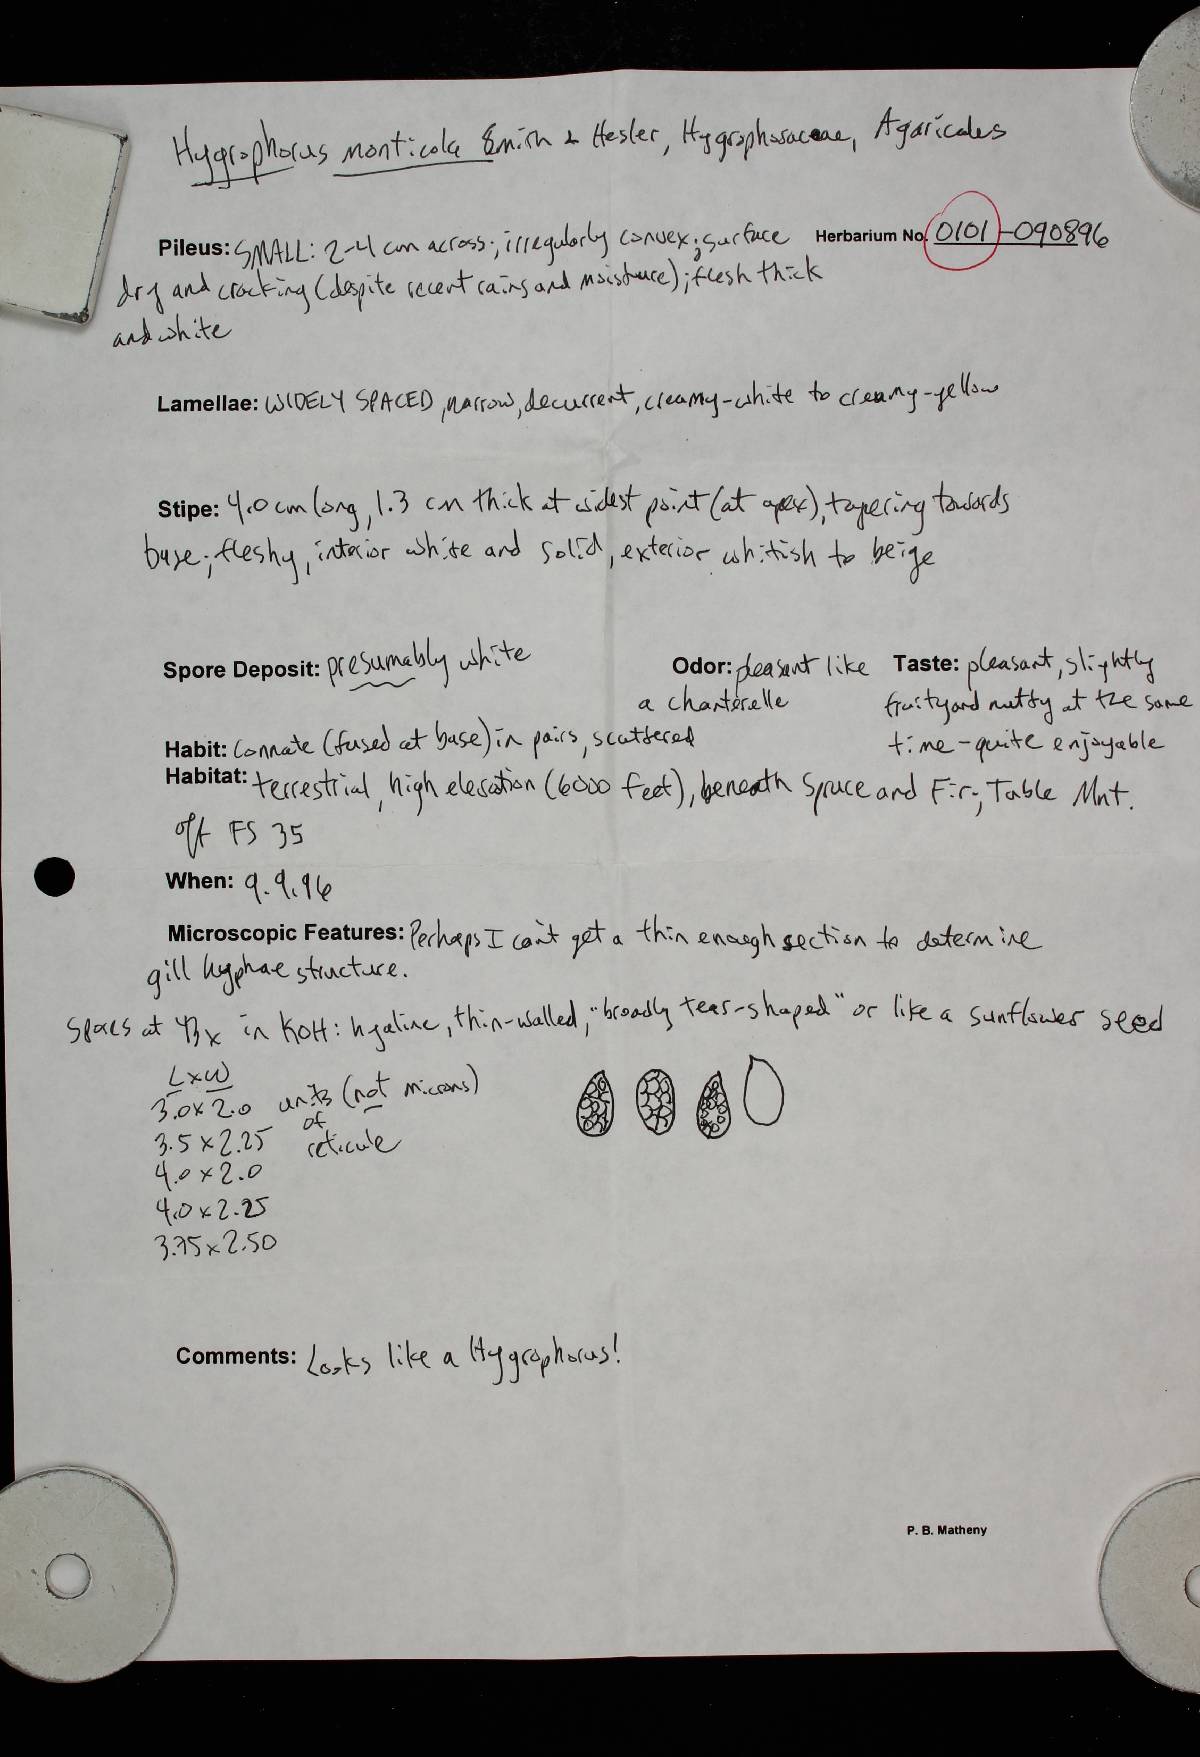 Hygrophorus monticola Smith & Hesler, Hygrophoraceae, Agaricales
Pileus: SMALL: 2-4 cm across; irregularly convex; surface Herbarium No. 0101-090896
dry and cracking (despite recent rains and moisture); flesh thick
and white
Lamellae: WIDELY SPACED, narrow, decurrent, creamy-white to creamy-yellow
Stipe: 4.0 cm long, 1.3 cm thick at widest point (at apex), tapering towards
base; fleshy, interior white and solid, exterior whitish to beige
Spore Deposit: presumably white Odor: pleasant like Taste: pleasant, slightly
a chanterelle fruity and nutty at the same
Habit: Connate (fused at base) in pairs, scattered time - quite enjoyable
Habitat: terrestrial, high elevation (6000 feet), beneath Spruce and Fir; Table Mnt.
off FS 35
When: 9.9.96
Microscopic Features: Perhaps I can't get a thin enough section to determine
gill hyphae structure.
Spores at 43x in KOH: hyaline, thin-walled, "broadly tear-shaped" or like a sunflower seed
L x W
3.0 x 2.0 units (not microns)
of
3.5 x 2.25 reticule
4.0 x 2.0
4.0 x 2.25
3.75 x 2.50
Comments: Looks like a Hygrophorus!
P. B. Matheny